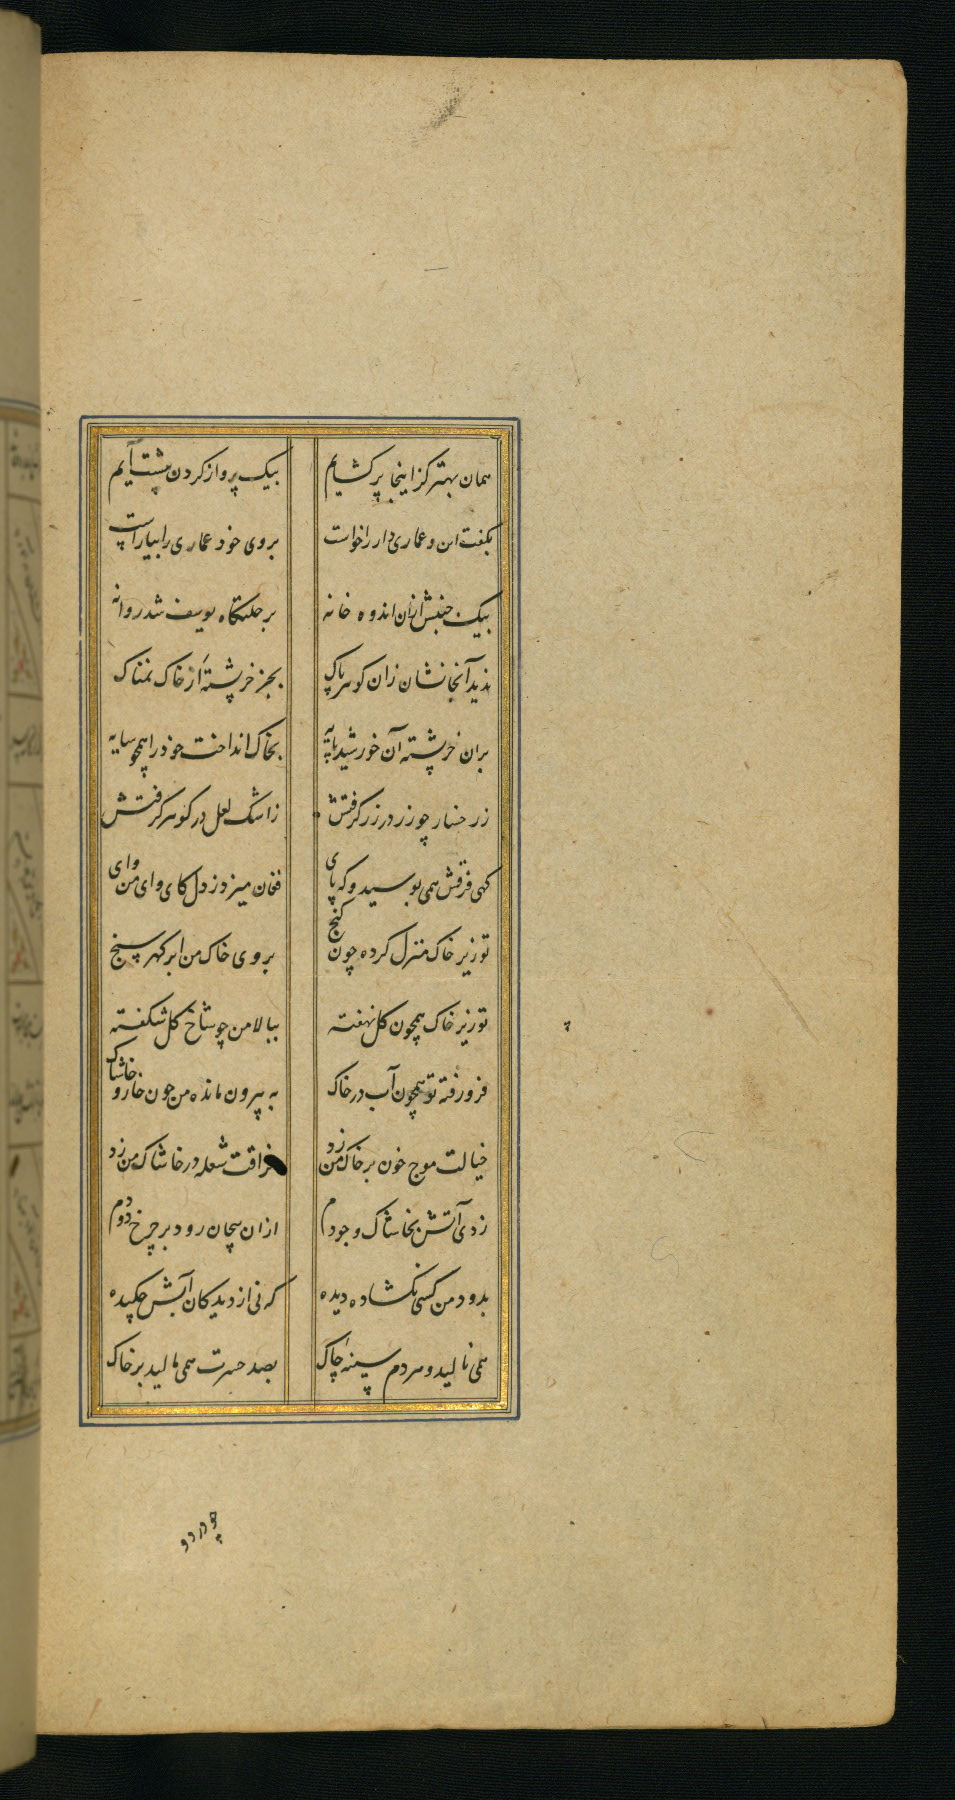 همان بهتر کز اینجا پر کشایم بیک پرواز کردن پیشت آیم
بکفت این و عماری دار را خواست بروی خود عماری را بیاراست
بیک جنبش ازان اندوه خانه برحلتکاه یوسف شد روانه
ندید آنجا نشان زان کوهر پاک بجز خرپشته از خاک نمناک
بران خرپشته آن خورشید پایه بخاک انداخت خود را همچو سایه
ز رخسار چو زر در زر کرفتش ز اشک لعل در کوهر کرفتش
کهی فرقش همی بوسید و که پای فغان میزد ز دل کای وای من وای
تو زیر خاک منزل کرده چون کنج بروی خاک من ابر کهر سنج
تو زیر خاک همچون کل نهفته ببالا من چو شاخ کل شکفته
فرو رفته تو همچون آب در خاک به بیرون مانده من چون خار و خاشاک
خیالت موج خون بر خاک من زد فراقت شعله در خاشاک من زد
زدی آتش بخاشاک وجودم ازان پیچان رود بر چرخ دودم
بدود من کسی نکشاده دیده که نی از دیدکان آبش چکیده
همی نالید و هر دم سینۀ چاک بصد حسرت همی مالید بر خاک
چو درد و